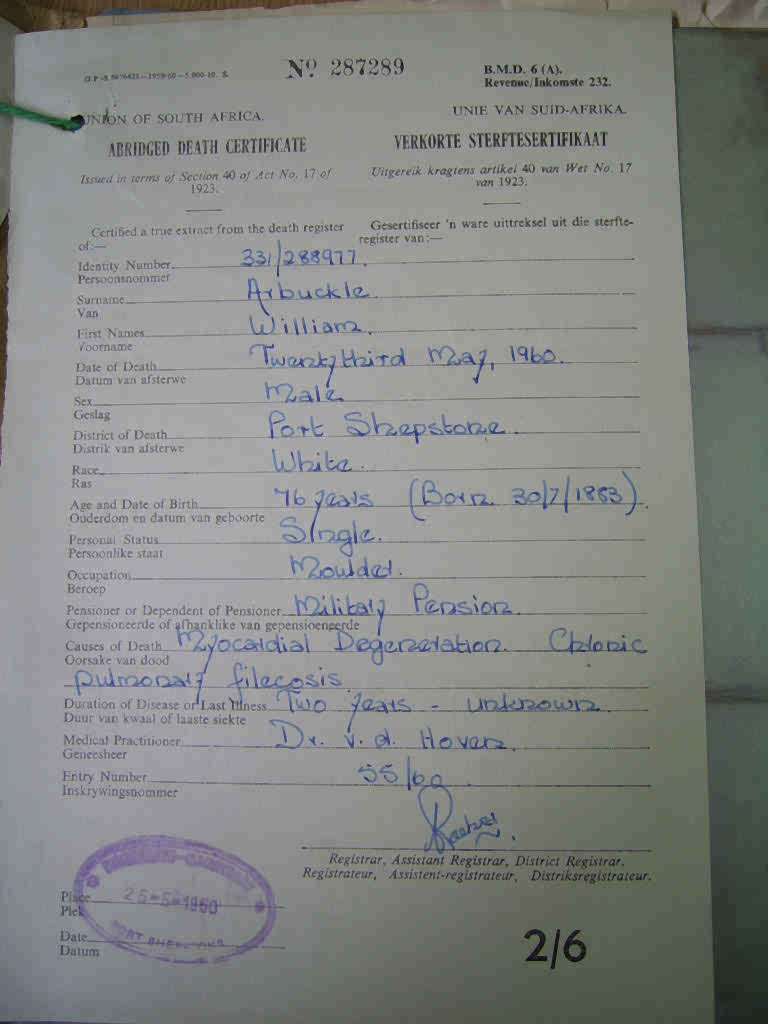 G.P.-S. 1959-60-5,000-10. S.
No 287289
B.M.D. 6 (A).
Revenue/Inkomste 232.
UNION OF SOUTH AFRICA.
UNIE VAN SUID-AFRIKA.
ABRIDGED DEATH CERTIFICATE
VERKORTE STERFTESERTIFIKAAT
Issued in terms of Section 40 of Act No. 17 of
1923.
Uitgereik kragtens artikel 40 van Wet No. 17
van 1923.
Certified a true extract from the death register
of:—
Gesertifiseer 'n ware uittreksel uit die sterfte-
register van:—
Identity Number 331/288977.
Persoonsnommer
Surname Arbuckle.
Van
First Names William.
Voorname
Date of Death Twentythird May, 1960.
Datum van afsterwe
Sex Male
Geslag
District of Death Port Shepstone.
Distrik van afsterwe
Race White.
Ras
Age and Date of Birth 76 years (Born 30/7/1883).
Ouderdom en datum van geboorte
Personal Status Single.
Persoonlike staat
Occupation Moulder.
Beroep
Pensioner or Dependent of Pensioner Military Pension.
Gepensioneerde of afhanklike van gepensioeneerde
Causes of Death Myocardial Degeneration. Chronic
Oorsake van dood
pulmonary filecosis
Duration of Disease or Last Illness Two years - unknown
Duur van kwaal of laaste siekte
Medical Practitioner Dr. v.d. Hoven.
Geneesheer
Entry Number 55/60
Inskrywingsnommer
Registrar, Assistant Registrar, District Registrar.
Registrateur, Assistent-registrateur, Distriksregistrateur.
Place
Plek
25-5-1960
PORT SHEPSTONE
Date
Datum
2/6